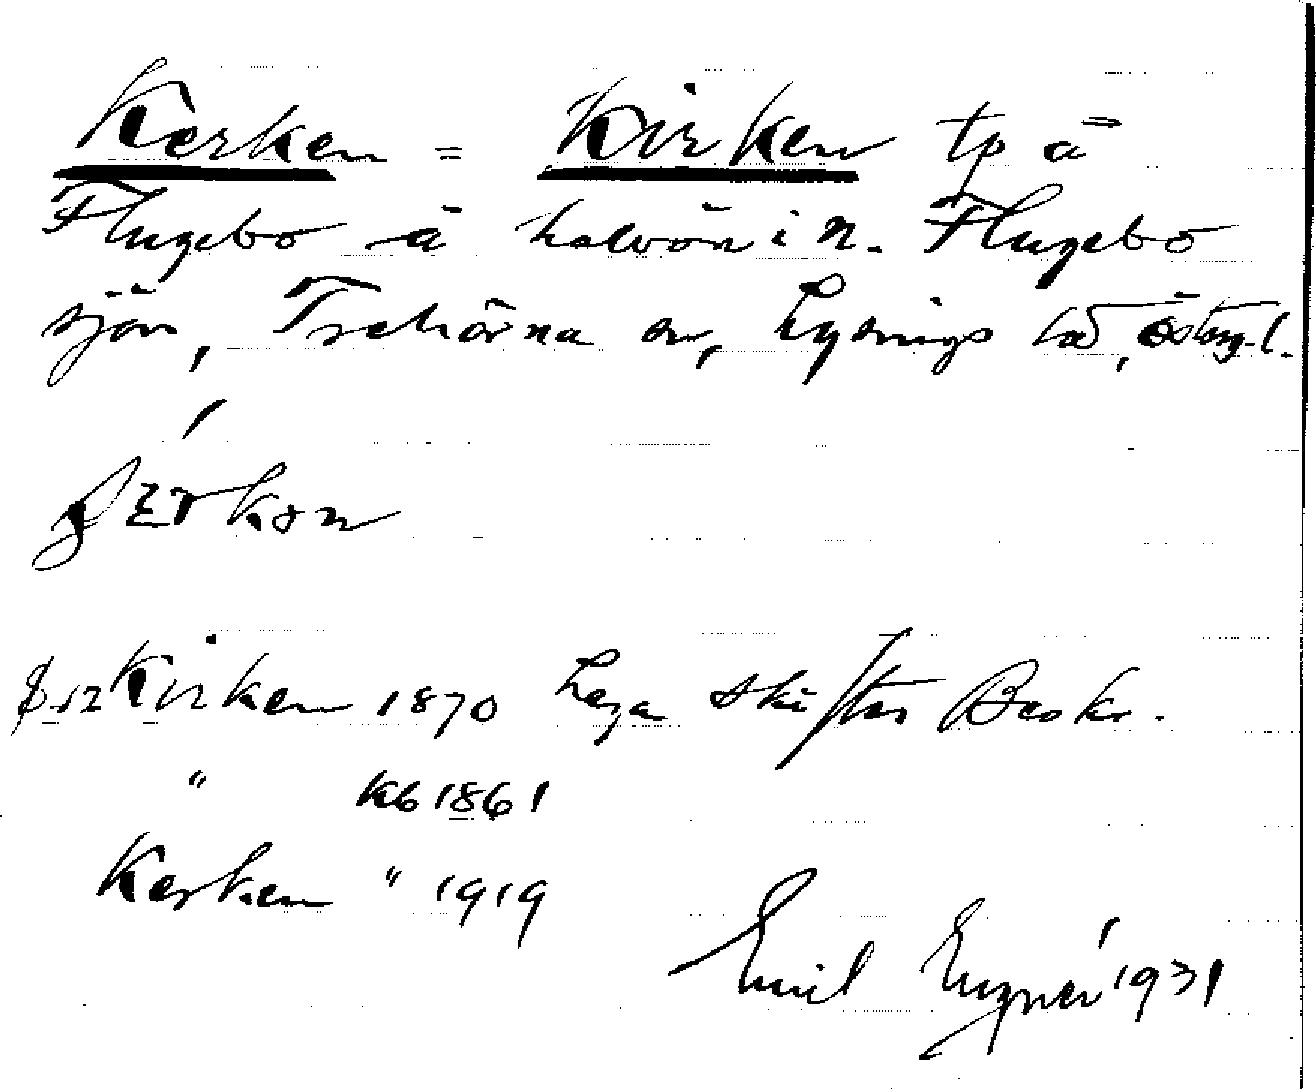 Kerken = Kirken tp å
Flugebo å halvön i N. Flugebo
sjön, Trehörna sn, Lysings hd, Östergl.
Kirken 1870 Laga skiftes Beskr.
" Kb 1861
Kerken " 1919
Emil 1931